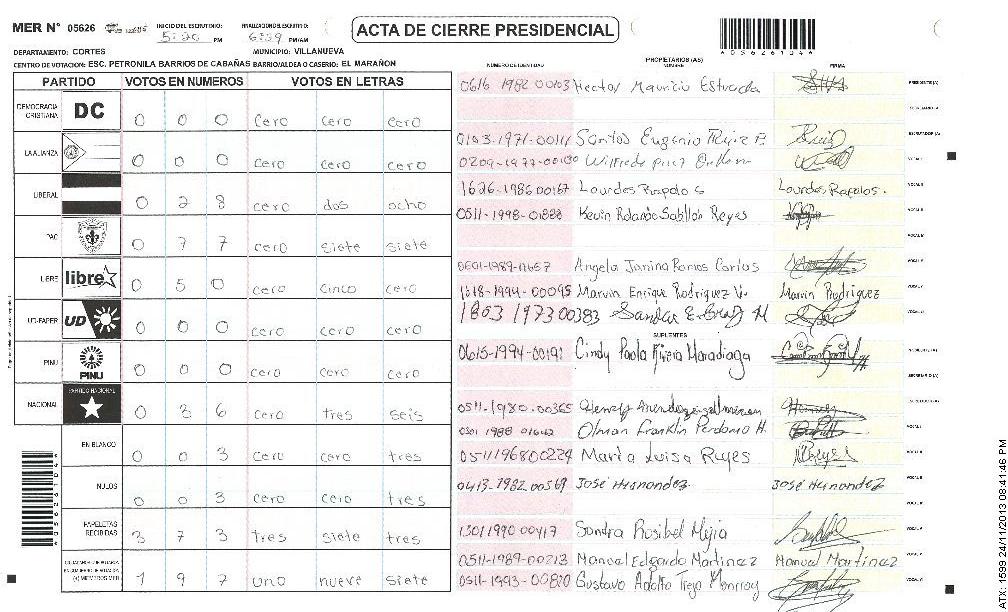 MER Nº 05626
INICIO DEL ESCRUTINIO: 5:20 PM
FINALIZACION DEL ESCRUTINIO: 6:59 PM/AM
ACTA DE CIERRE PRESIDENCIAL
DEPARTAMENTO: CORTES MUNICIPIO: VILLANUEVA
CENTRO DE VOTACION: ESC. PETRONILA BARRIOS DE CABAÑAS BARRIO/ALDEA O CASERIO: EL MARAÑON
PARTIDO VOTOS EN NUMEROS VOTOS EN LETRAS
DEMOCRACIA CRISTIANA DC 0 0 0 cero cero cero
LA ALIANZA 0 0 0 cero cero cero
LIBERAL 0 2 8 cero dos ocho
PAC 0 7 7 cero siete siete
LIBRE libre 0 5 0 cero cinco cero
UD-FAPER UD 0 0 0 cero cero cero
PINU PINU 0 0 0 cero cero cero
NACIONAL PARTIDO NACIONAL 0 3 6 cero tres seis
EN BLANCO 0 0 3 cero cero tres
NULOS 0 0 3 cero cero tres
PAPELETAS RECIBIDAS 3 7 3 tres siete tres
1 9 7 uno nueve siete
NUMERO DE IDENTIDAD PROPIETARIOS (AS) NOMBRE FIRMA
0616 1982 00103 Hector Mauricio Estrada PRESIDENTE (A)
SECRETARIO (A)
0103-1971-00111 Santos Eugenio ESCRUTADOR (A)
0209-1977-00130 Wilfredo VOCAL I
1626-1986 00167 Lourdes Rapalo S Lourdes Rapalos. VOCAL II
0511-1998-01888 Kevin Rolando Sabillon Reyes
0801-1989-11657 Angela Janina Ramos Carias
1618-1994-00095 Marvin Enrique Rodriguez V. Marvin Rodriguez
1803 1973 00383 Sandra
SUPLENTES
0615-1994-00191 Cindy Paola Maradiaga PRESIDENTE (A)
SECRETARIO (A)
0511-1980-00365 ESCRUTADOR (A)
0301 1988 01642 Olman Franklin Perdomo H. VOCAL I
0511196800224 Maria Luisa Reyes Reyes
0413-1982 00369 José Hernandez José Hernandez
1301 1990 00417 Sandra Rosibel Mejia
0511-1989-00213 Manuel Edgardo Martinez Manuel Martinez
0511-1993-00820 Gustavo Adolfo Trejo Monrroy
ATX: 1599 24/11/2013 08:41:46 PM